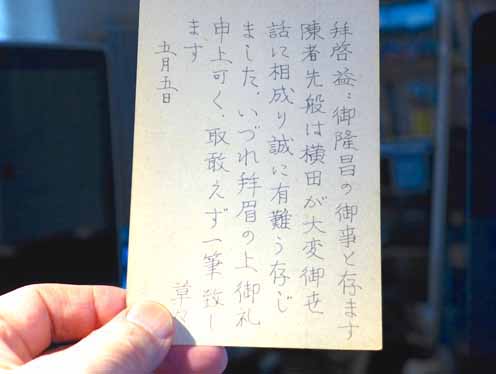 拝啓益〻御隆昌の御事と存ます
陳者先般は横田が大変御世
話に相成り誠に有難う存じ
ました、いづれ拜眉の上御礼
申上可く、取敢えず一筆致し
ます
草々
五月五日